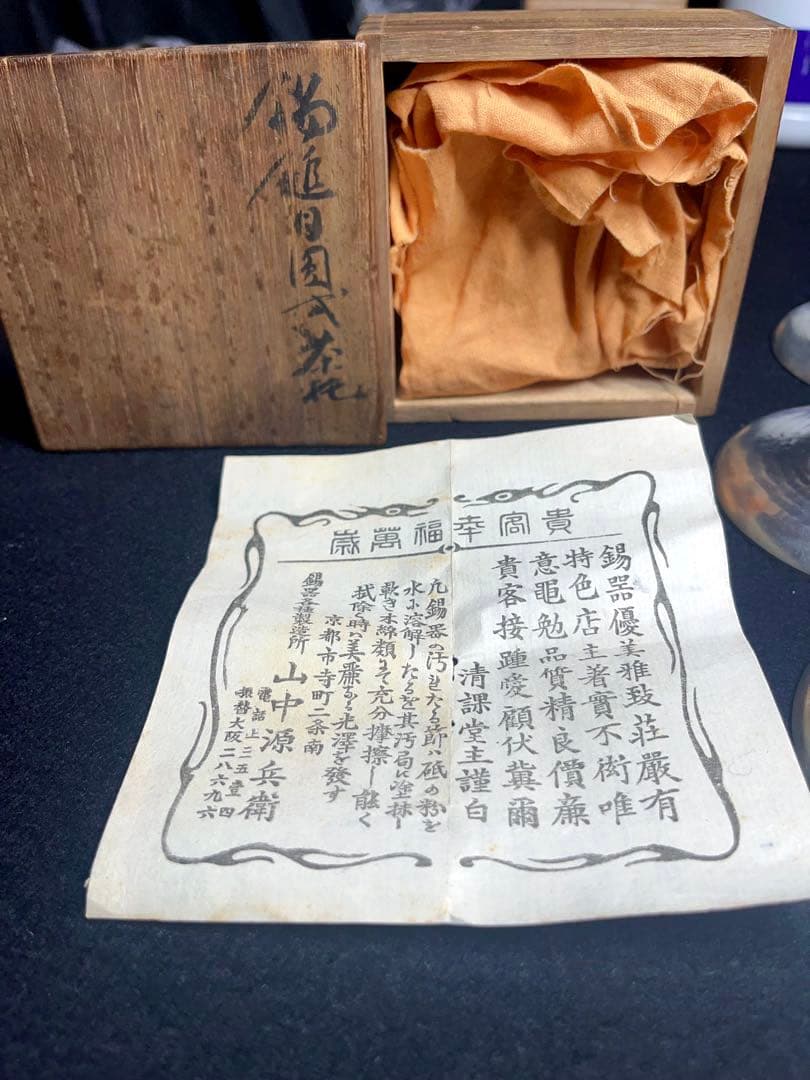 錫鎚目圓式茶托
貴客幸福萬歳
錫器優美雅致莊嚴有
特色店主著實不衒唯
意黽勉品質精良價廉
貴客接踵愛顧伏冀爾
清課堂主謹白
凡錫器の汚れたる節ハ砥の粉を
水に溶解したるを其汚局に塗抹し
軟き木綿類にて充分摩擦し能く
拭除く時ハ美麗なる光澤を發す
京都市寺町二条南
錫器各種製造所 山中源兵衛
電話上二五壹四
振替大阪二八六九六